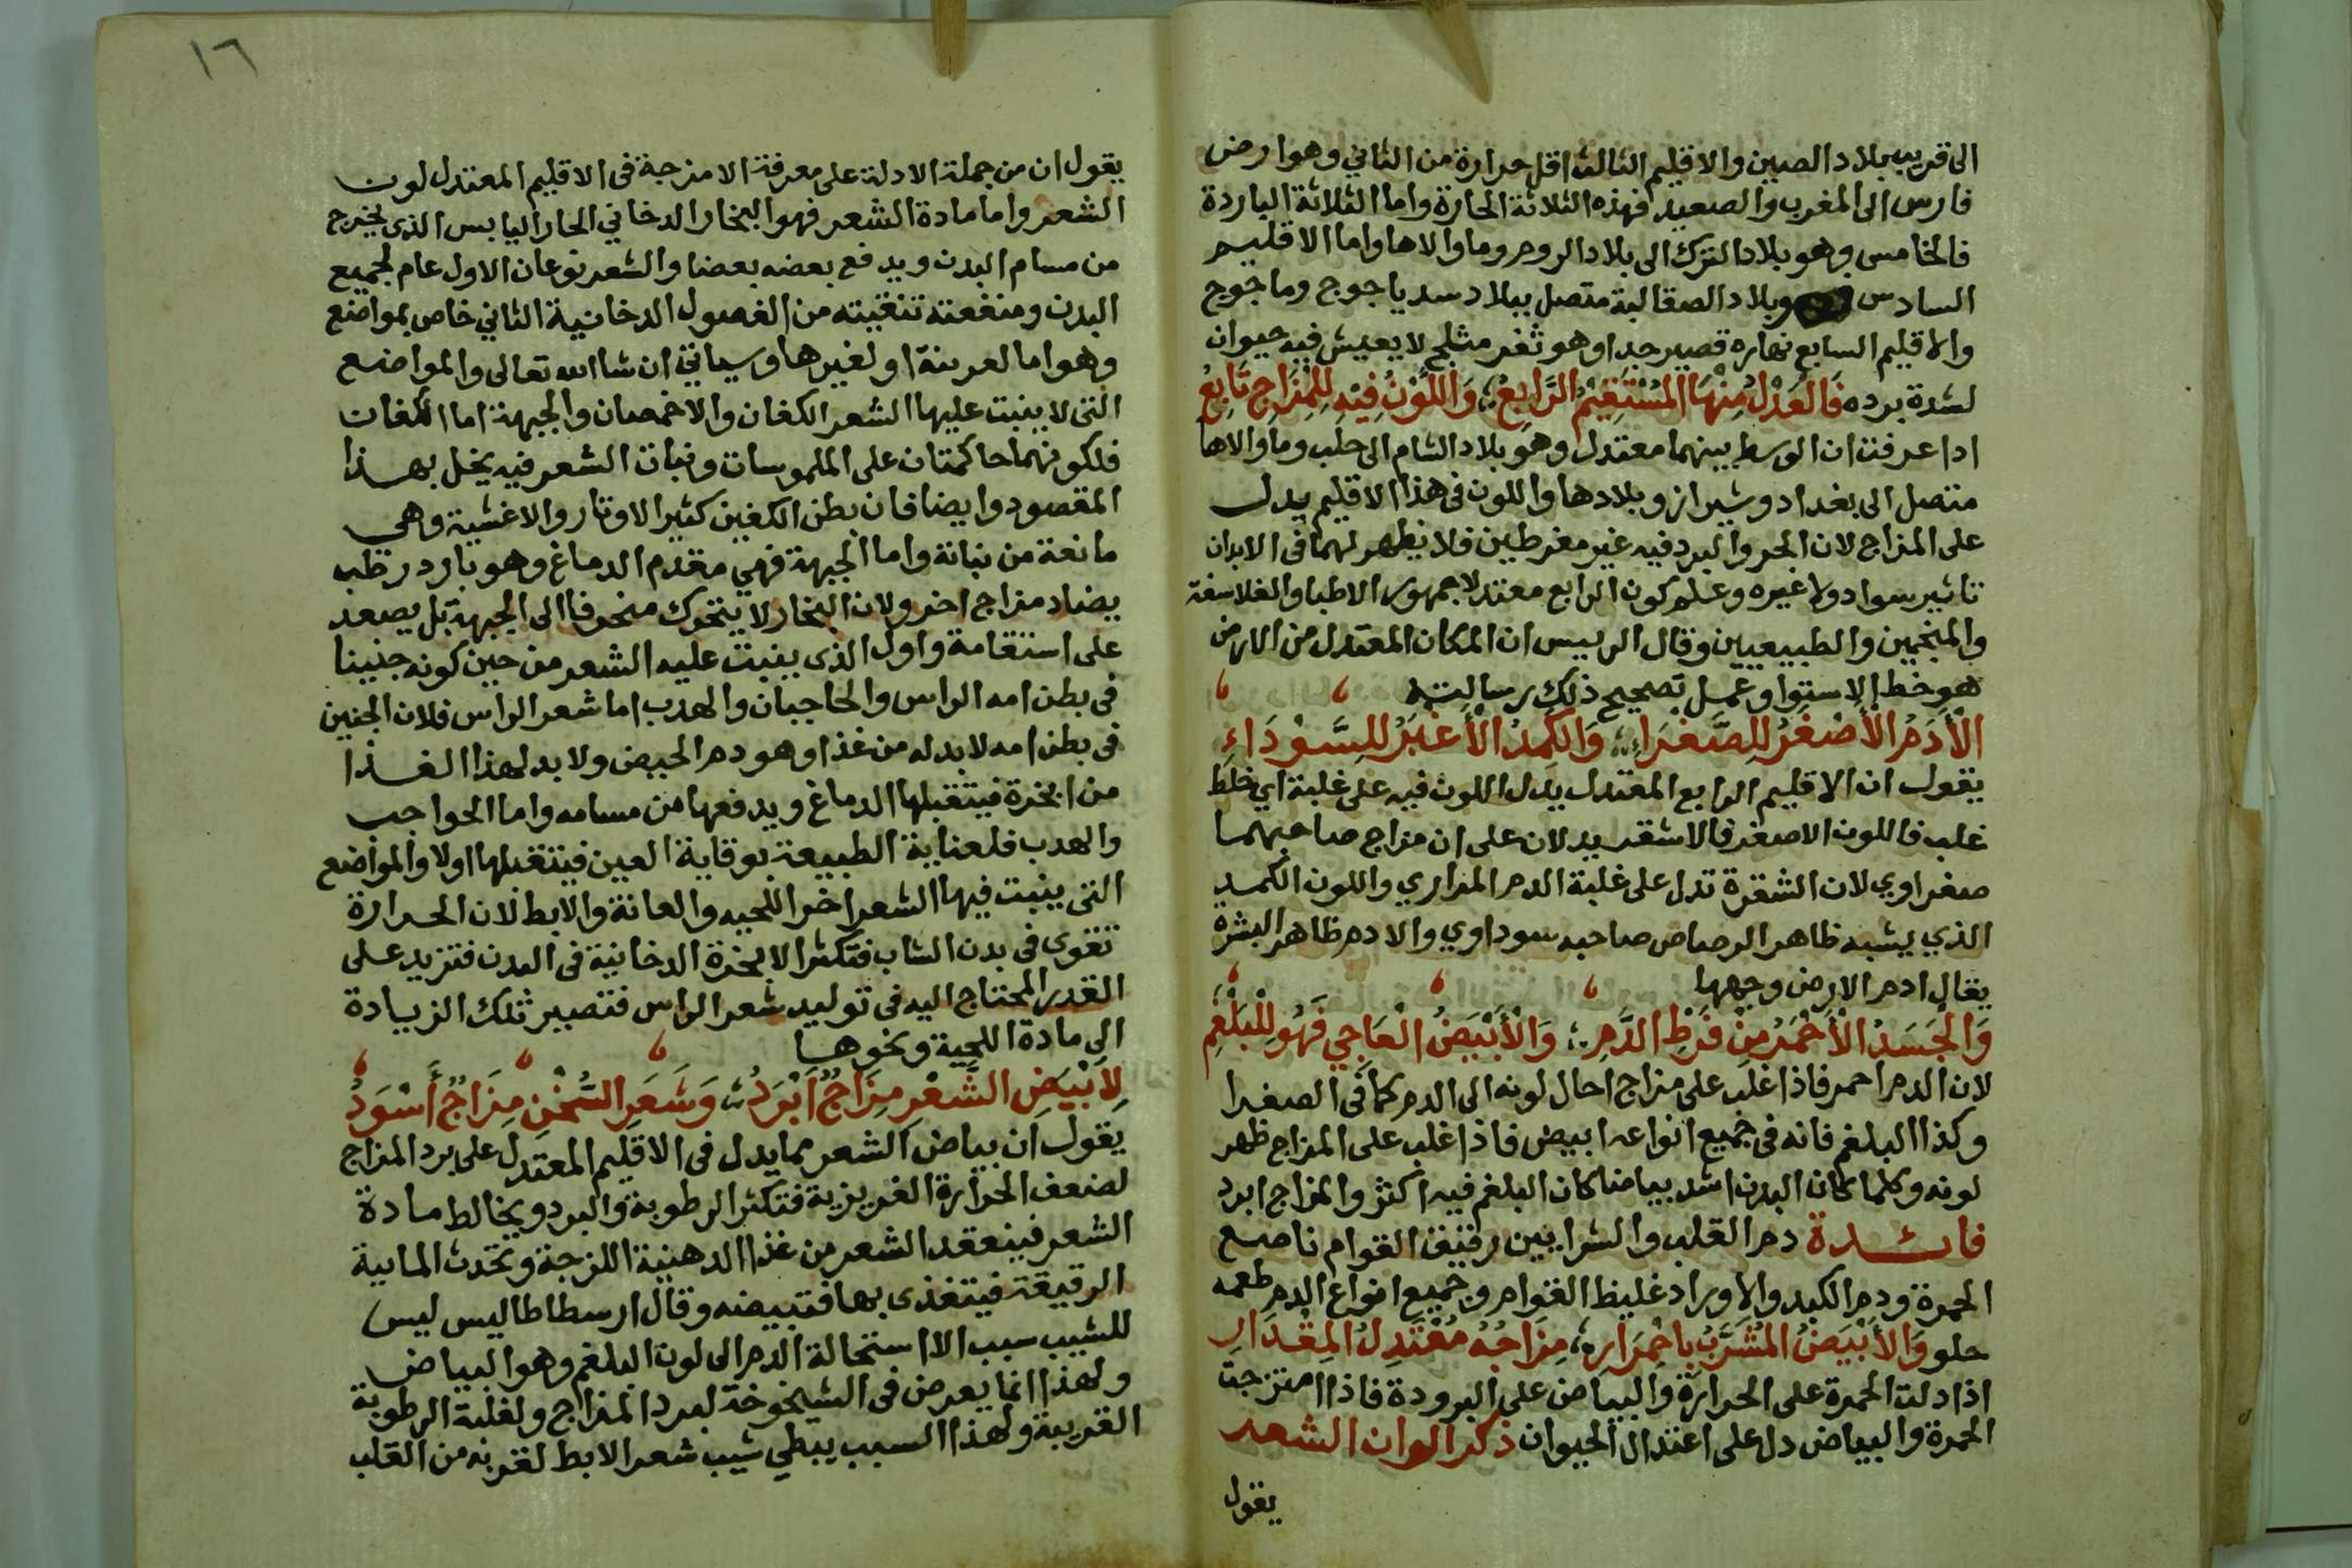 الى قريب بلاد الصين والاقليم الثالث اقل حرارة من الثاني وهو ارض
فارس الى المغرب والصعيد فهذه الثلاثة الحارة واما الثلاثة الباردة
فالخامس وهو بلاد الترك الى بلاد الروم وما والاها واما الاقليم
السادس وبلاد الصقالبة متصل ببلاد سد ياجوج وماجوج
والاقليم السابع نهاره قصير جدا وهو ثغر مثلج لا يعيش فيه حيوان
لشدة برده فَالعَدْلُ مِنْهَا المُسْتَقِيمُ الرَّابِعُ ؛ وَاللَّوْنُ فِيْهِ لِلْمِزَاجِ تَابِعُ
اذا عرفت ان الوسط بينهما معتدل وهو بلاد الشام الى حلب وما والاها
متصل الى بغداد وشيراز وبلادها واللون في هذا الاقليم يدل
على المزاج لان الحر والبرد فيه غير مفرطين فلا يظهر لهما في الابدان
تاثير سواد ولا غيره وعلم كون الرابع معتدلا جمهور الاطبا والفلاسفة
والمنجمين والطبيعيين وقال الرييس ان المكان المعتدل من الارض
هو خط الاستوا وعمل تصحيح ذلك رسالته
الْأَدَمُ الْأَصْفَرُ لِلصَّفْرَاءِ ؛ وَالكَمِدُ الْأَغْبَرُ لِلسَّوْدَاءِ
يقول ان الاقليم الرابع المعتدل يدل اللون فيه على غلبة اي خلط
غلب فاللون الاصفر فالاشقر يدلان على ان مزاج صاحبهما
صفراوي لان الشقرة تدل على غلبة الدم المراري واللون الكمد
الذي يشبه ظاهر الرصاص صاحبه سوداوي والادم ظاهر البشره
يقال ادم الارض وجهها
وَالْجَسَدُ الْأَحْمَرُ مِنْ فَرْطِ الدَّمِ ؛ وَالْأَبْيَضُ الْعَاجِي فَهُوَ لِلْبَلْغَمِ
لان الدم احمر فاذا غلب على مزاج احال لونه الى الدم كما في الصفرا
وكذا البلغم فانه في جميع انواعه ابيض فاذا غلب على المزاج ظهر
لونه وكلما كان البدن اشد بياضا كان البلغم فيه اكثر والمزاج ابرد
فائدة دم القلب والشرايين رقيق القوام ناصع
الحمرة ودم الكبد والاوراد غليظ القوام وجميع انواع الدم طعمه
حلو وَالأَبْيَضُ المُشَرَّبُ بِاحْمِرَارِ ؛ مِزَاجُهُ مُعْتَدِلُ المِقْدَارِ
اذا دلت الحمرة على الحرارة والبياض على البرودة فاذا امتزجت
الحمرة والبياض دل على اعتدال الحيوان ذكر الوان الشعر
يقول
١٦
يقول ان من جملة الادلة على معرفة الامزجة في الاقليم المعتدل لون
الشعر واما مادة الشعر فهو البخار الدخاني الحار اليابس الذي يخرج
من مسام البدن ويدفع بعضه بعضا والشعر نوعان الاول عام لجميع
البدن ومنفعته تنقيته من الفضول الدخانية الثاني خاص بمواضع
وهو اما لعرينة او لغيرها وسياتي ان شا الله تعالى والمواضع
التي لا ينبت عليها الشعر الكفان والاخمصان والجبهة اما الكفات
فلكونهما حاكمتان على الملموسات ونبات الشعر فيه يخل بهذا
المقصود وايضا فان بطن الكفين كثير الاوتار والاغشية وهي
مانعة من نباتة واما الجبهة فهي مقدم الدماغ وهو بارد رطب
يضاد مزاج اخر ولان البخار لا يتحرك منحرفا الى الجبهة بل يصعد
على استقامة واول الذي ينبت عليه الشعر من حين كونه جنينا
في بطن امه الراس والحاجبان والهدب اما شعر الراس فلان الجنين
في بطن امه لا بد له من غذا وهو دم الحيض ولا بد لهذا الغذا
من ابخرة فيتقبلها الدماغ ويدفعها من مسامه واما الحواجب
والهدب فلعناية الطبيعة بوقاية العين فيتقبلها اولا والمواضع
التي ينبت فيها الشعر اخرا اللحيه والعانة والابط لان الحرارة
تقوى في بدن الشاب فتكثر الابخرة الدخانية في البدن فتزيد على
القدر المحتاج اليه في توليد شعر الراس فتصير تلك الزيادة
الى مادة اللحية ونحوها
لِأَبْيَضِ الشَّعْرِ مِزَاجٌ اَبْرَدُ ؛ وَشَعَرِ السُّخْنِ مِزَاجٌ أَسْوَدُ
يقول ان بياض الشعر مما يدل في الاقليم المعتدل على برد المزاج
لضعف الحرارة الغريزية فتكثر الرطوبة والبرد ويخالط مادة
الشعر فينعقد الشعر من غذا الدهنية اللزجة وتحدث المايية
الرقيقة فيتغذى بها فتبيضه وقال ارسطاطاليس ليس
للشيب سبب الا استحالة الدم الى لون البلغم وهو البياض
ولهذا انما يعرض في الشيخوخة لبرد المزاج ولغلبة الرطوبة
الغريبة ولهذا السبب يبطي شيب شعر الابط لقربه من القلب